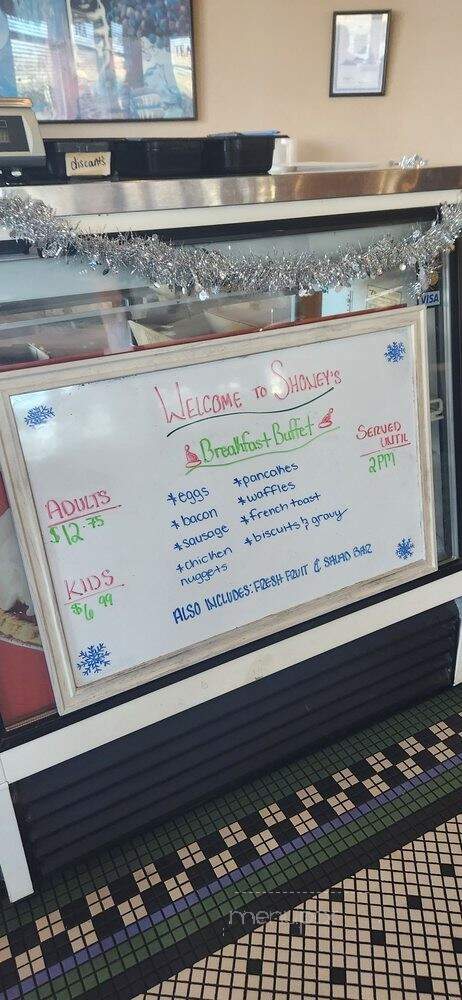 discounts
VISA
WELCOME TO SHONEY'S
Breakfast Buffet
SERVED
UNTIL
2PM
ADULTS
$12.75
KIDS
$6.99
*eggs
*bacon
*sausage
*chicken
nuggets
*pancakes
*waffles
*french toast
*biscuits & gravy
ALSO INCLUDES: FRESH FRUIT & SALAD BAR
menupix